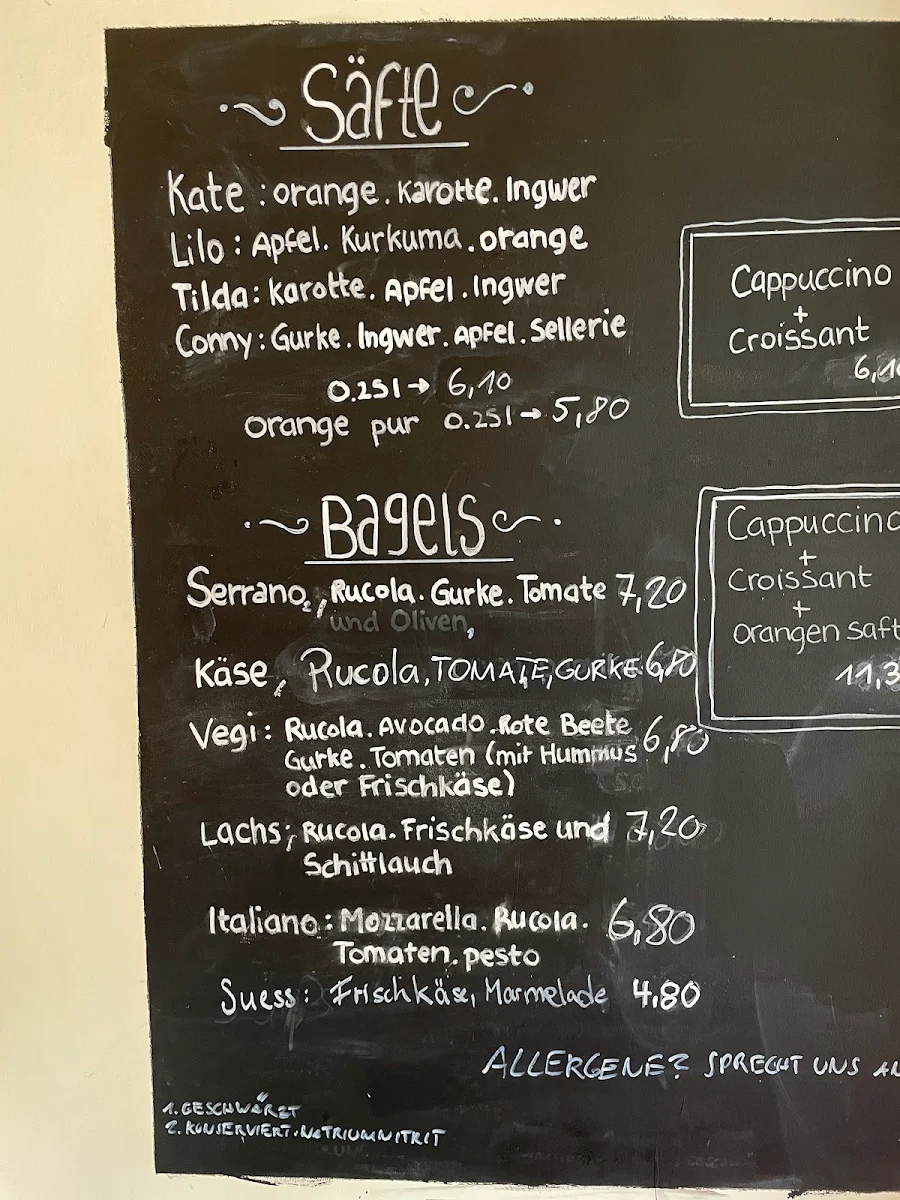 Säfte
Kate : orange . Karotte . Ingwer
Lilo : Apfel . Kurkuma . orange
Tilda : Karotte . Apfel . Ingwer
Conny : Gurke . Ingwer . Apfel . Sellerie
0.25l → 6,10
orange pur 0.25l → 5,80
Cappuccino
+
Croissant
6,10
Bagels
Serrano₂, Rucola . Gurke . Tomate 7,20
und Oliven,
Käse, Rucola, TOMATE, GURKE 6,80
Vegi : Rucola . Avocado . Rote Beete 6,80
Gurke . Tomaten (mit Hummus
oder Frischkäse)
Lachs; Rucola . Frischkäse und 7,20
Schittlauch
Italiano : Mozzarella . Rucola . 6,80
Tomaten . pesto
Suess : Frischkäse, Marmelade 4,80
Cappuccino
+
Croissant
+
Orangen Saft
11,3
ALLERGENE? SPRECHT UNS AN
1. GESCHWÄRZT
2. KONSERVIERT. NATRIUMNITRIT